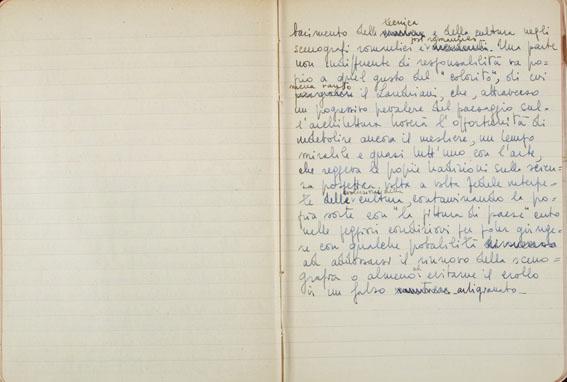 tecnica
tacimento della e della cultura negli
post romantici
scenografi romantici e. Una parte
non indifferente di responsabilità va po-
sta a quel gusto del "colorito", di cui
mena vanto
il Landriani, che, attraverso
un progressivo prevalere del paesaggio sul-
l'architettura troverà l'opportunità di
indebolire ancora il mestiere, un tempo
mirabile e quasi tutt'uno con l'arte,
che reggeva le proprie tradizioni sulla scien-
za prospettica, volta a volta fedele interpre-
te della cultura, contaminando la pro-
pria sorte con "la pittura di paese" certo
nelle peggiori condizioni per poter giunge-
re con qualche probabilità
ad addossarsi il rinnovo della sceno-
grafia o almeno ad evitarne il crollo
in un falso artigianato